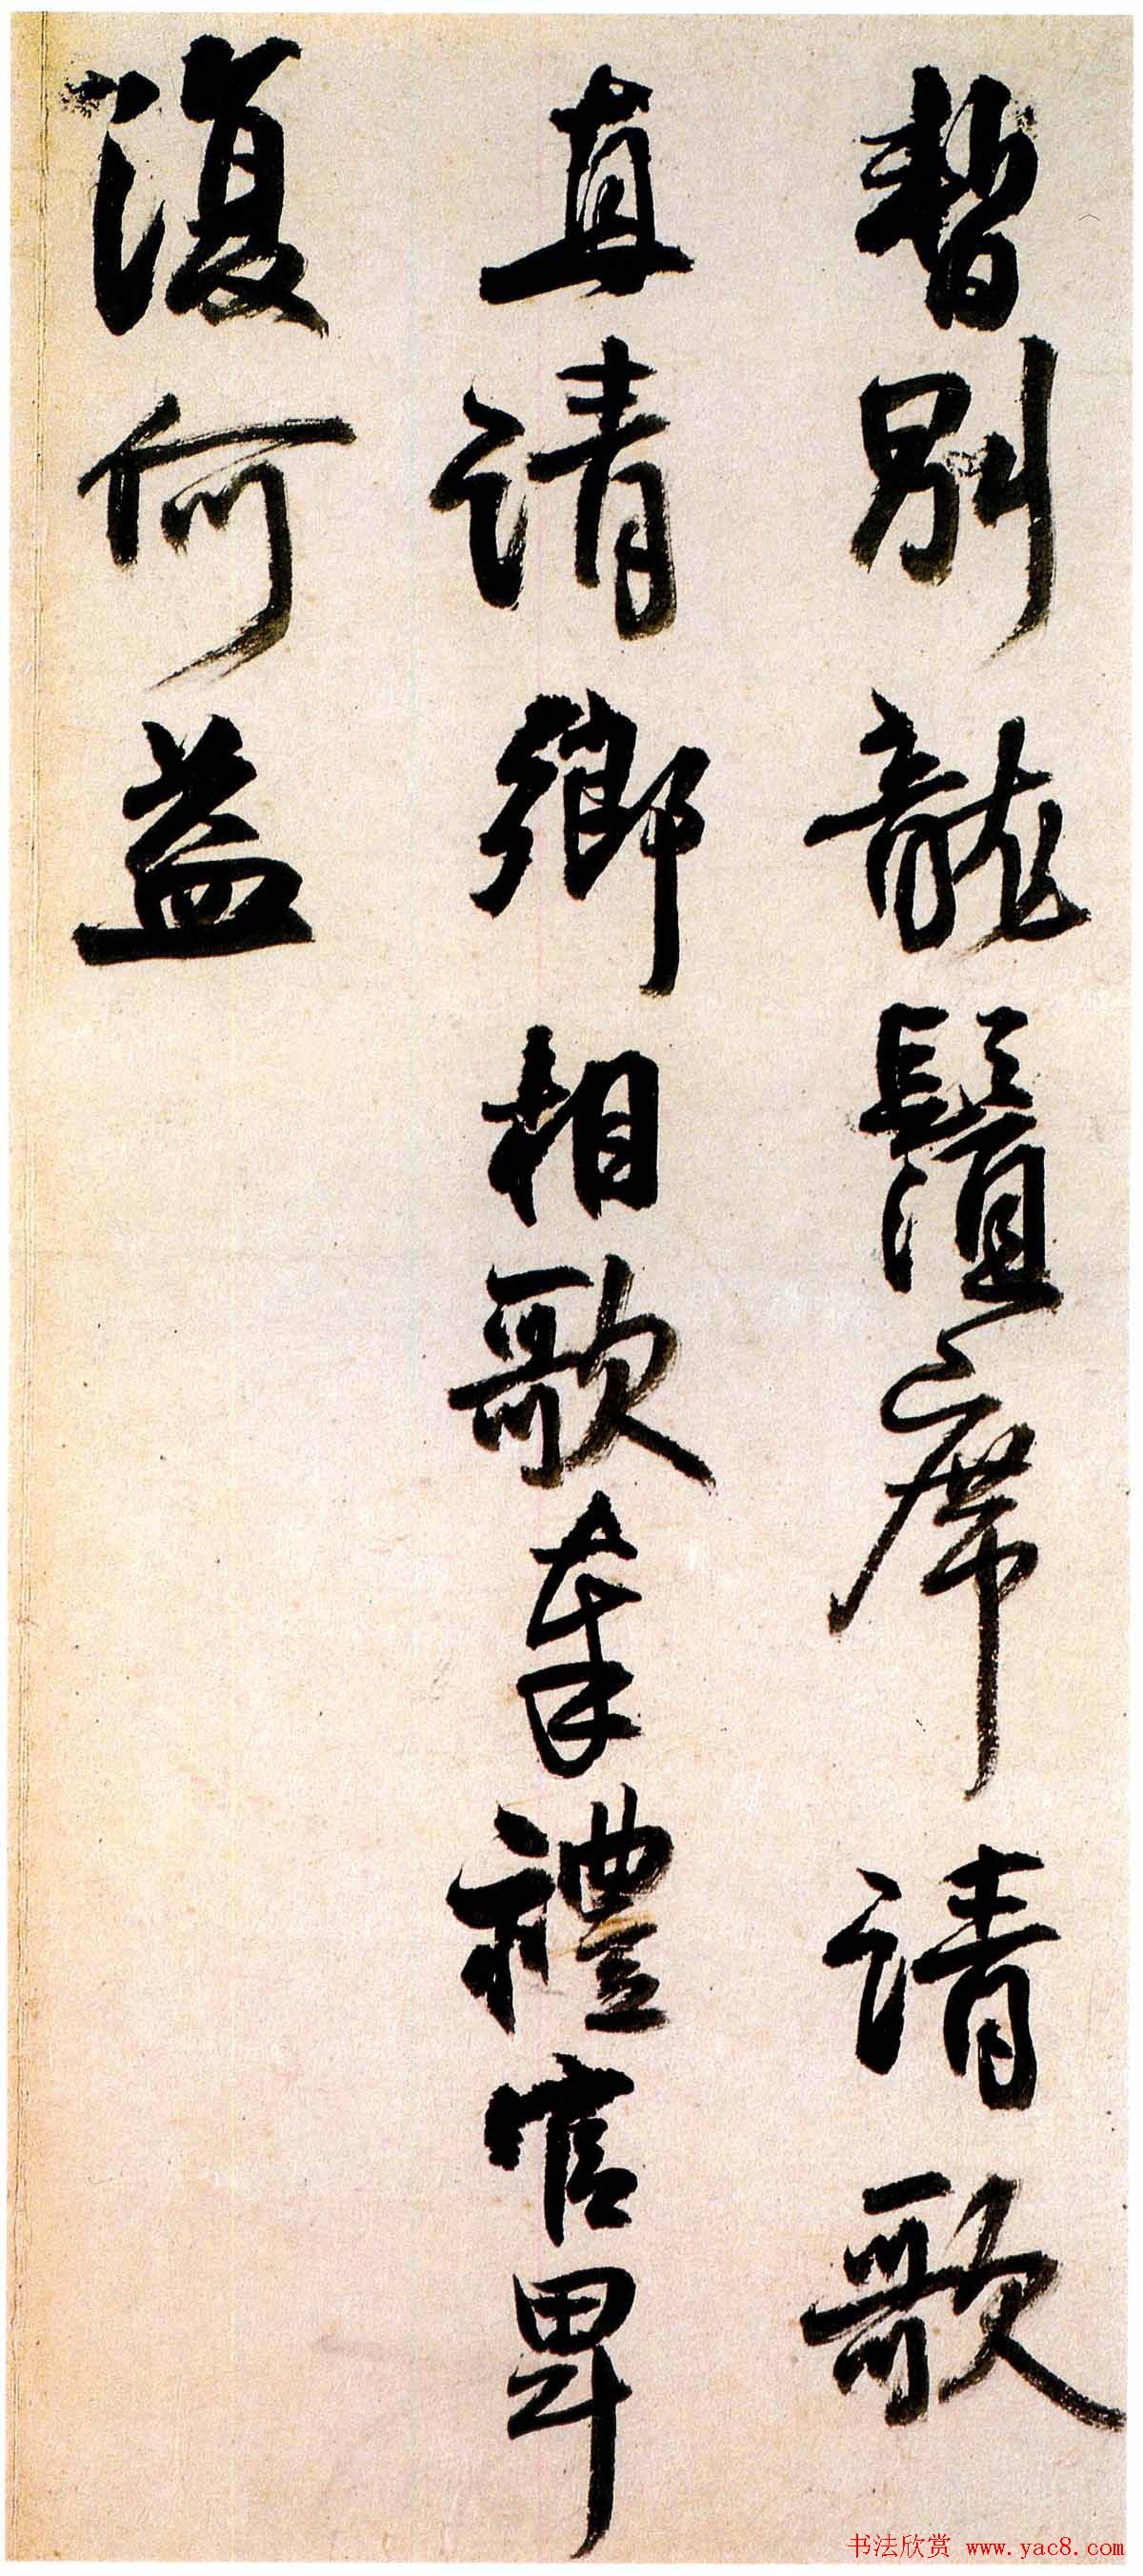 暫別龍鬚席請歌
真請鄉相歌奉禮官卑
復何益
书法欣赏 www.yac8.com